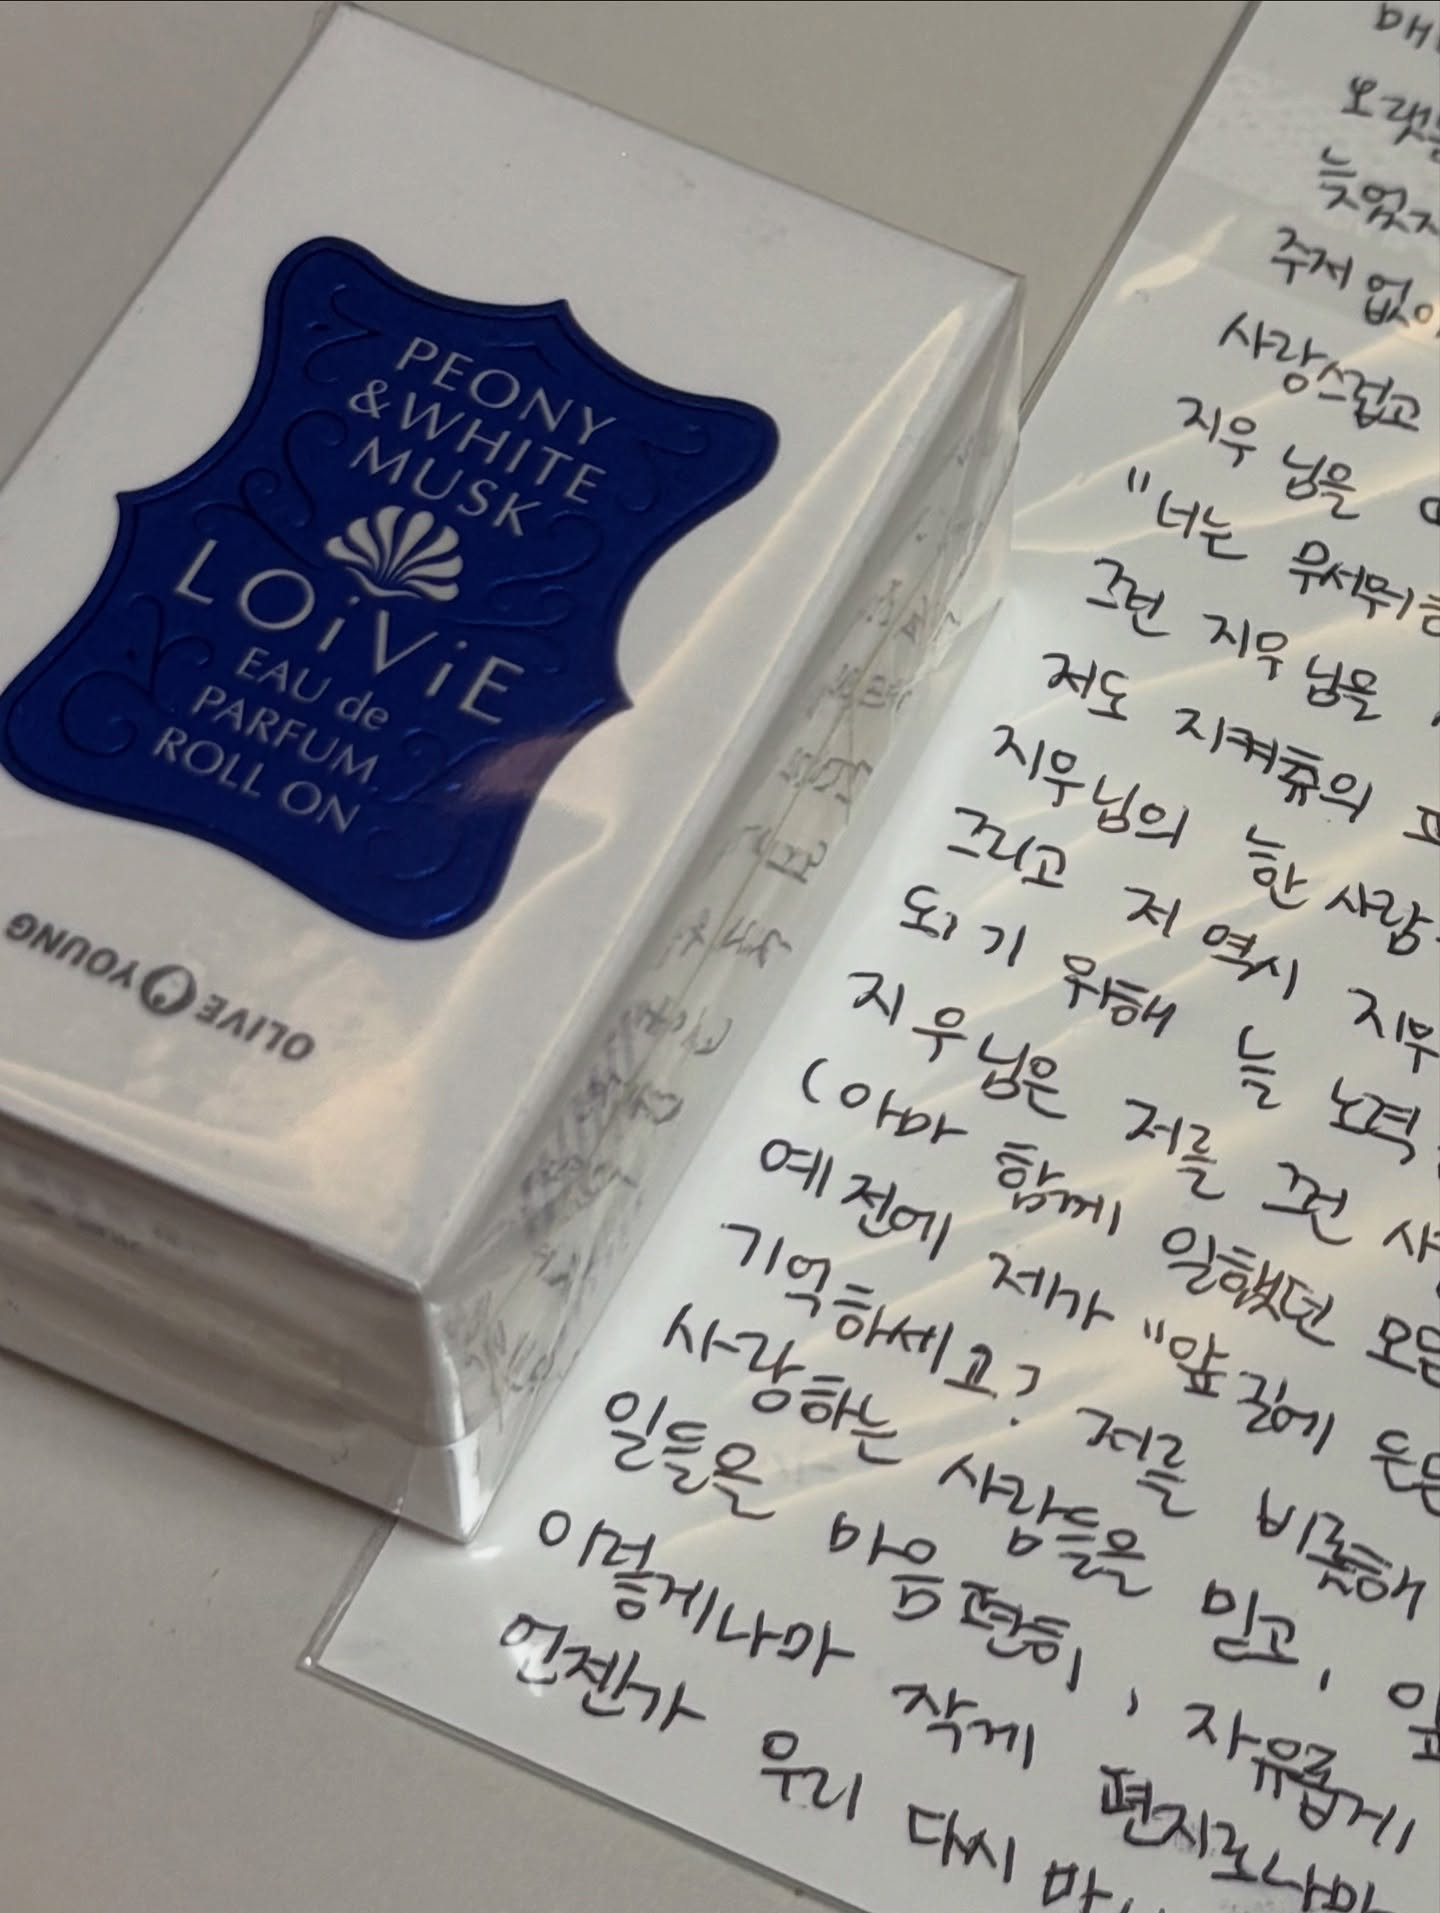 PEONY
& WHITE
MUSK
LOiViE
EAU de
PARFUM
ROLL ON
OLIVE YOUNG
늦었지
주저 없이
사랑스럽고
지우 님을
"너는 무서워
그런 지우 님을,
저도 지켜츄의
지우님의 늘한 사람
그리고 저 역시 지우
되기 위해 늘 노력
지우님은 저를 그런 사
(아마 함께 일했던 모든
예전에 제가 "앞길에 든든
기억하세요? 저를 비롯해
사랑하는 사람들을 믿고, 앞
일들을 마음 편히, 자유롭게
이렇게나마 작게 편지로나마
언젠가 우리 다시